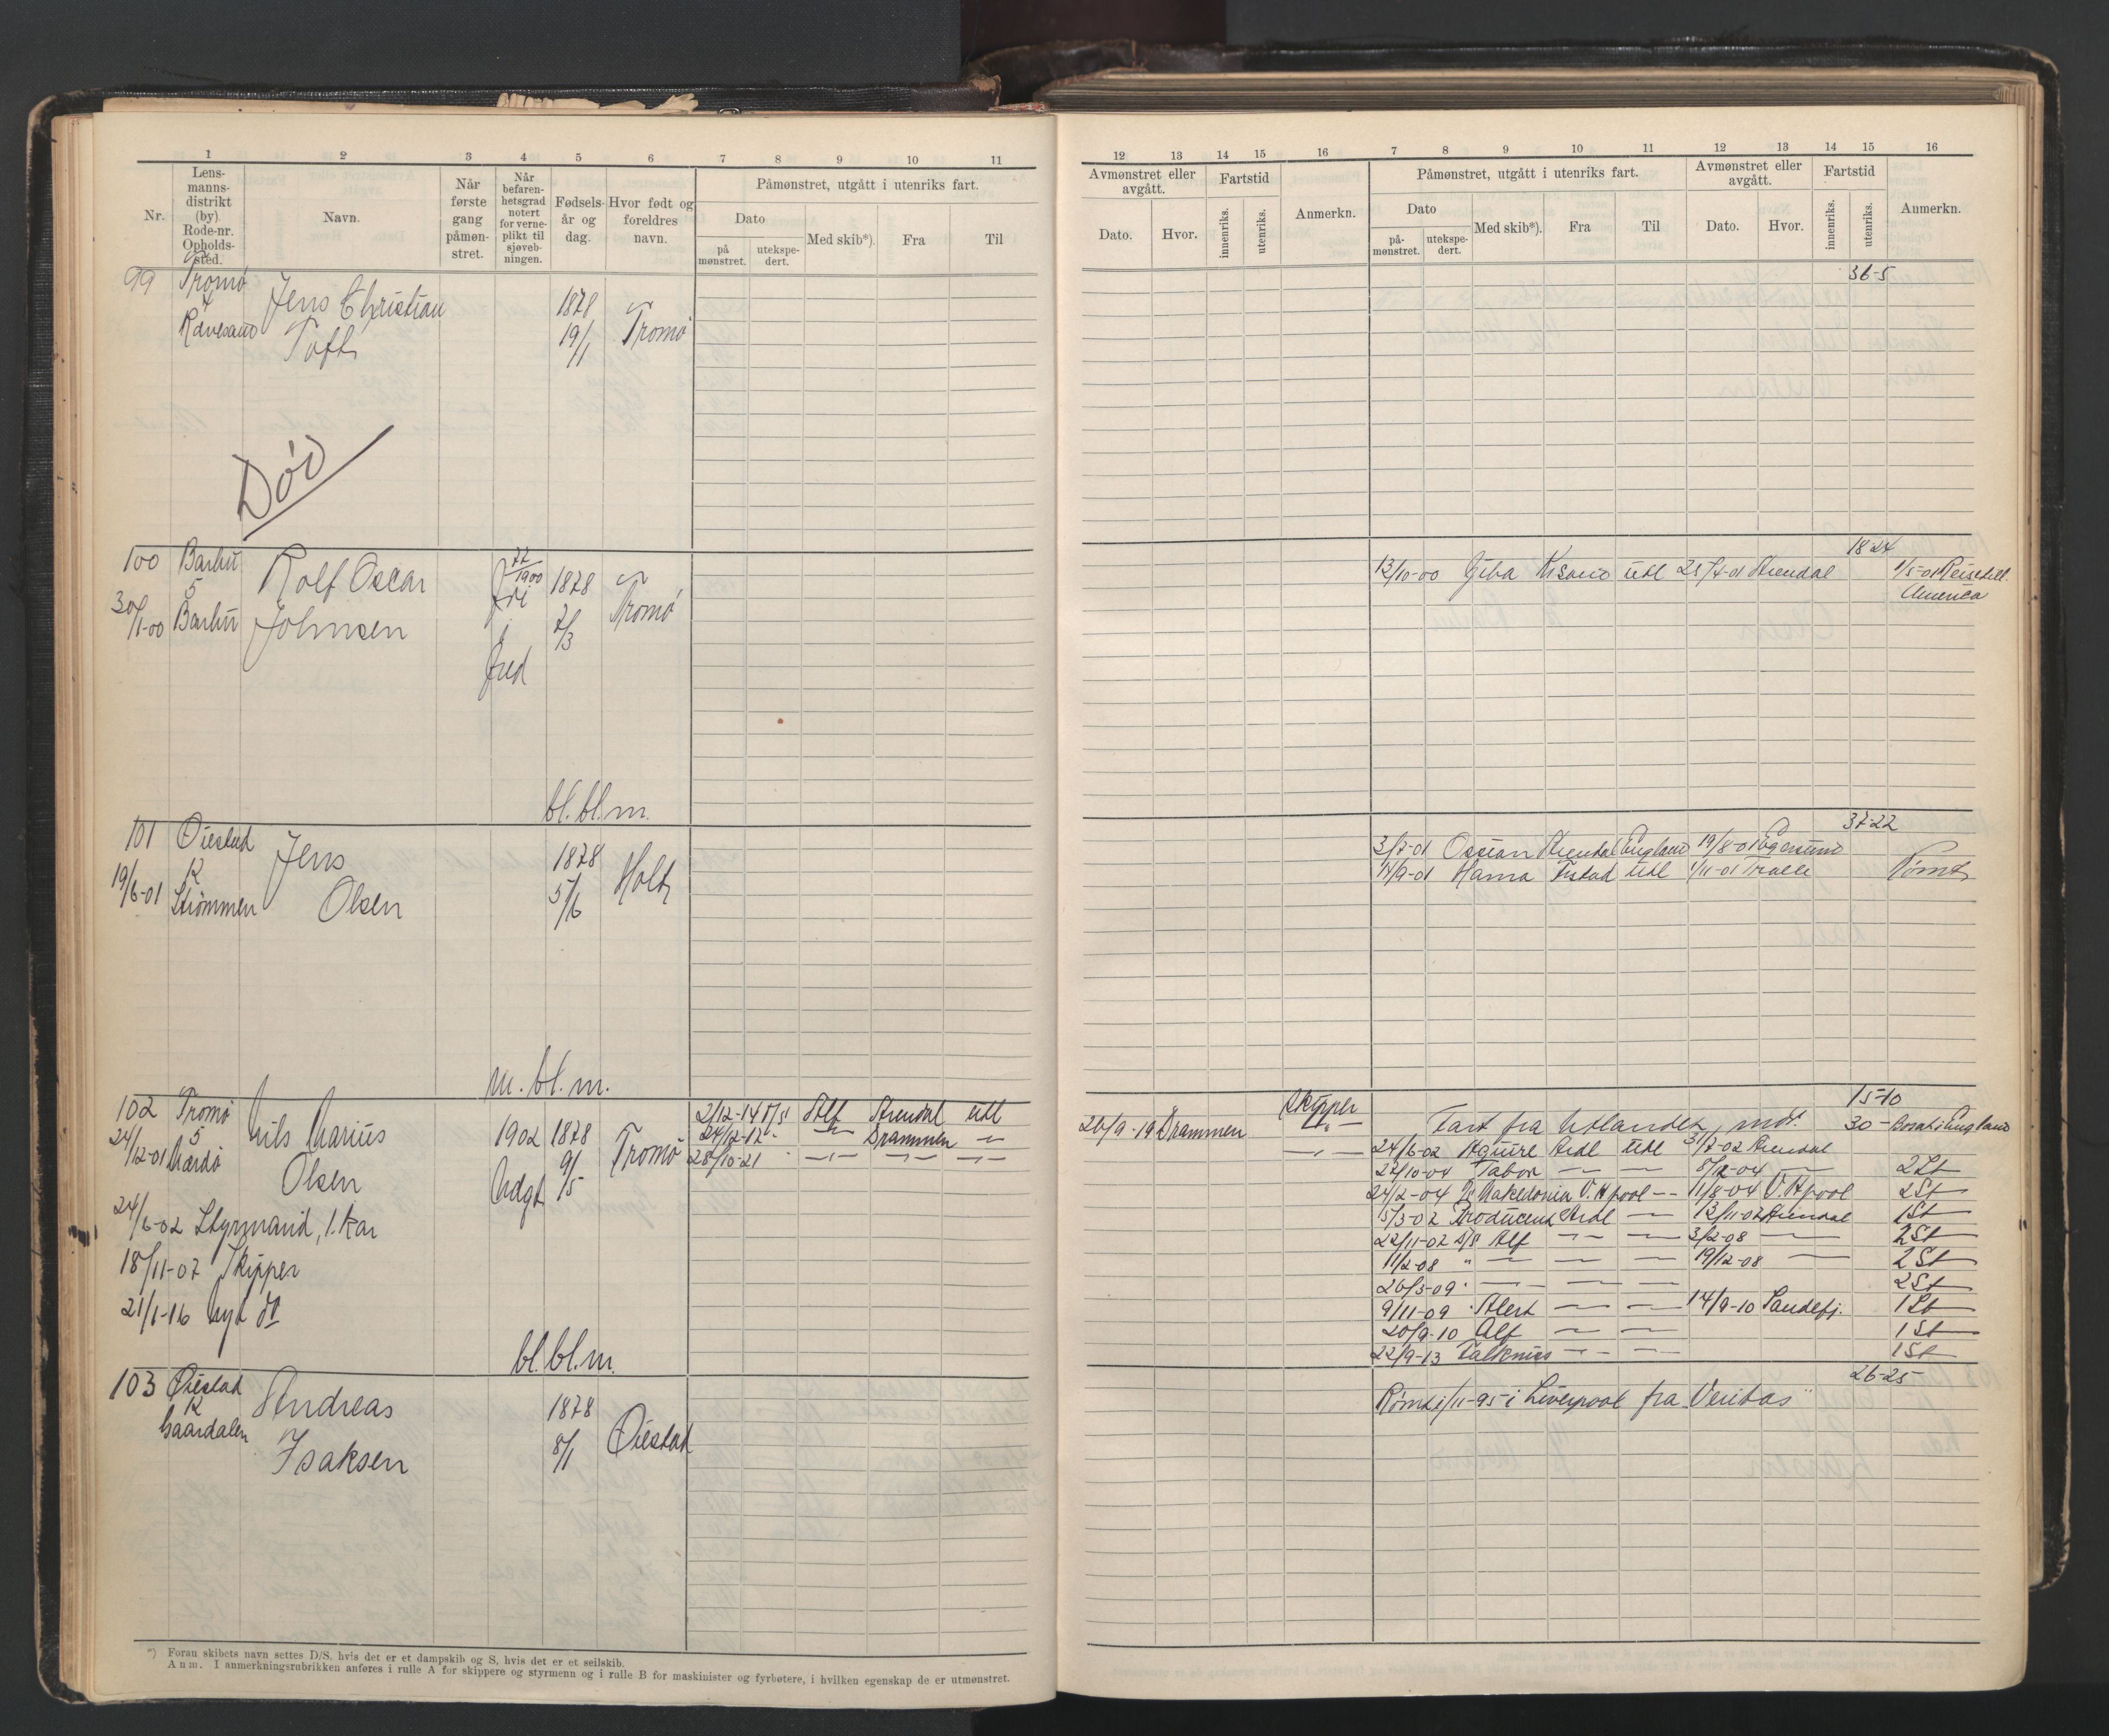 1 2 3 4 5 6 7 8 9 10 11
Nr.
Lens-
manns-
distrikt
(by)
Rode-nr.
Opholds-
sted.
Navn.
Når
første
gang
påmøn-
stret.
Når
befaren-
hetsgrad
notert
for verne-
plikt til
sjøveb-
ningen.
Fødsels-
år og
dag.
Hvor født og
foreldres
navn.
Påmønstret, utgått i utenriks fart.
Dato
på
mønstret.
utekspe-
dert.
Med skib*).
Fra
Til
99 Tromø
4
Jens Christian
Toft
1878
19/1
Tromø
Død
100 Barbu
5
30/1-00 Barbu
Rolf Oscar
Johnsen
22/1900
1878
2/3
Tromø
bl. bl. m.
101 Øiestad
K
19/6-01 Strømmen
Jens
Olsen
1878
5/6
Holt
m. bl. m.
102 Tromø
5
24/12-01 Mærdø
Nils Marius
Olsen
1902
Udgt
1878
9/5
Tromø
2/12-14 D/S Alf Arendal utl
24/12-17 " — Drammen —
28/10-21 " — — —
24/6-02 Styrmand, 1. Kar
18/11-07 Skipper
21/1-16 Nyt do
bl. bl. m.
103 Øiestad
K
Gaardalen
Andreas
Isaksen
1878
8/1
Øiestad
*) Foran skibets navn settes D/S, hvis det er et dampskib og S, hvis det er et seilskib.
Anm. I anmerkningsrubrikken anføres i rulle A for skippere og styrmenn og i rulle B for maskinister og fyrbøtere, i hvilken egenskap de er utmønstret.
12 13 14 15 16 7 8 9 10 11 12 13 14 15 16
Avmønstret eller
avgått.
Dato.
Hvor.
Fartstid
innenriks.
utenriks.
Anmerkn.
Påmønstret, utgått i utenriks fart.
Dato
på-
mønstret.
utekspe-
dert.
Med skib*).
Fra
Til
Avmønstret eller
avgått.
Dato.
Hvor.
Fartstid
innenriks.
utenriks.
Anmerkn.
36-5
18-24
13/10-00 utl 25/4-01 Arendal 1/5-01 Reise till
America
37-22
3/7-01 Ossian Arendal England 19/8-01 Egersund
14/9-01 utl 1/11-01 Rømt
15-10
Skipper
26/9-19 Drammen
Fart fra Utlandet, mdr. 30 - Bosat i England
24/6-02 Aquire Ardl utl 31/7-02 Arendal
22/10-04 Tabor — — — 2 St
24/2-04 D/S Makedonia V. H pool — 11/8-04 V. H pool 2 St
Producent Ardl — 13/11-07 Arendal 1 St
22/11-07 D/S Alf — — 3/2-08 — 2 St
11/2-08 " — — — 19/12-08 — 2 St
26/5-09 " — — — 2 St
9/11-09 " Alert — — 14/9-10 Sandefj. 1 St
20/9-10 Alf — — 1 St
22/9-13 — — 1 St
26-25
Rømt 1/11-95 i Liverpool fra "Veritas"